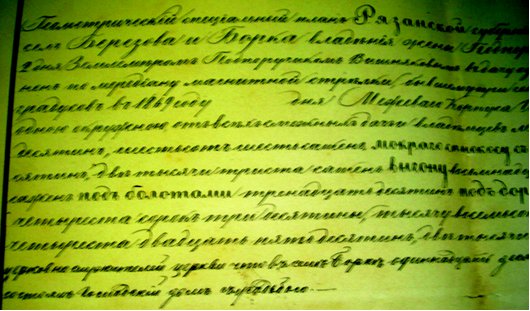 Геометрическій спеціальный планъ Рязанской губерн
селъ Березова и Борка владѣнія жены Подпор
2 дня Землемѣромъ Подпоручикомъ
по меридіану магнитной стрѣлки бывшему
градусовъ въ 1869 году дня Межеваго Корпуса
одною окружною отъ всѣхъ смежныхъ дачъ владѣльцевъ
десятинъ, шестьсотъ шесть саженъ мокраго сенокосу
сятинъ, двѣ тысячи триста саженъ выгону восемнадц
саженъ подъ болотами тринадцать десятинъ подъ дор
четыреста сорокъ три десятины, тысячу восемьсо
четыреста двадцать пять десятинъ, двѣ тысячи
церковно служителей церкви что въ селѣ Боркѣ одинадцать деся
Господскій домъ